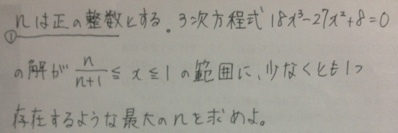 ① nは正の整数とする。3次方程式 18x³-27x²+8=0
の解が n/(n+1) ≦ x ≦ 1 の範囲に、少なくとも1つ
存在するような最大のnを求めよ。